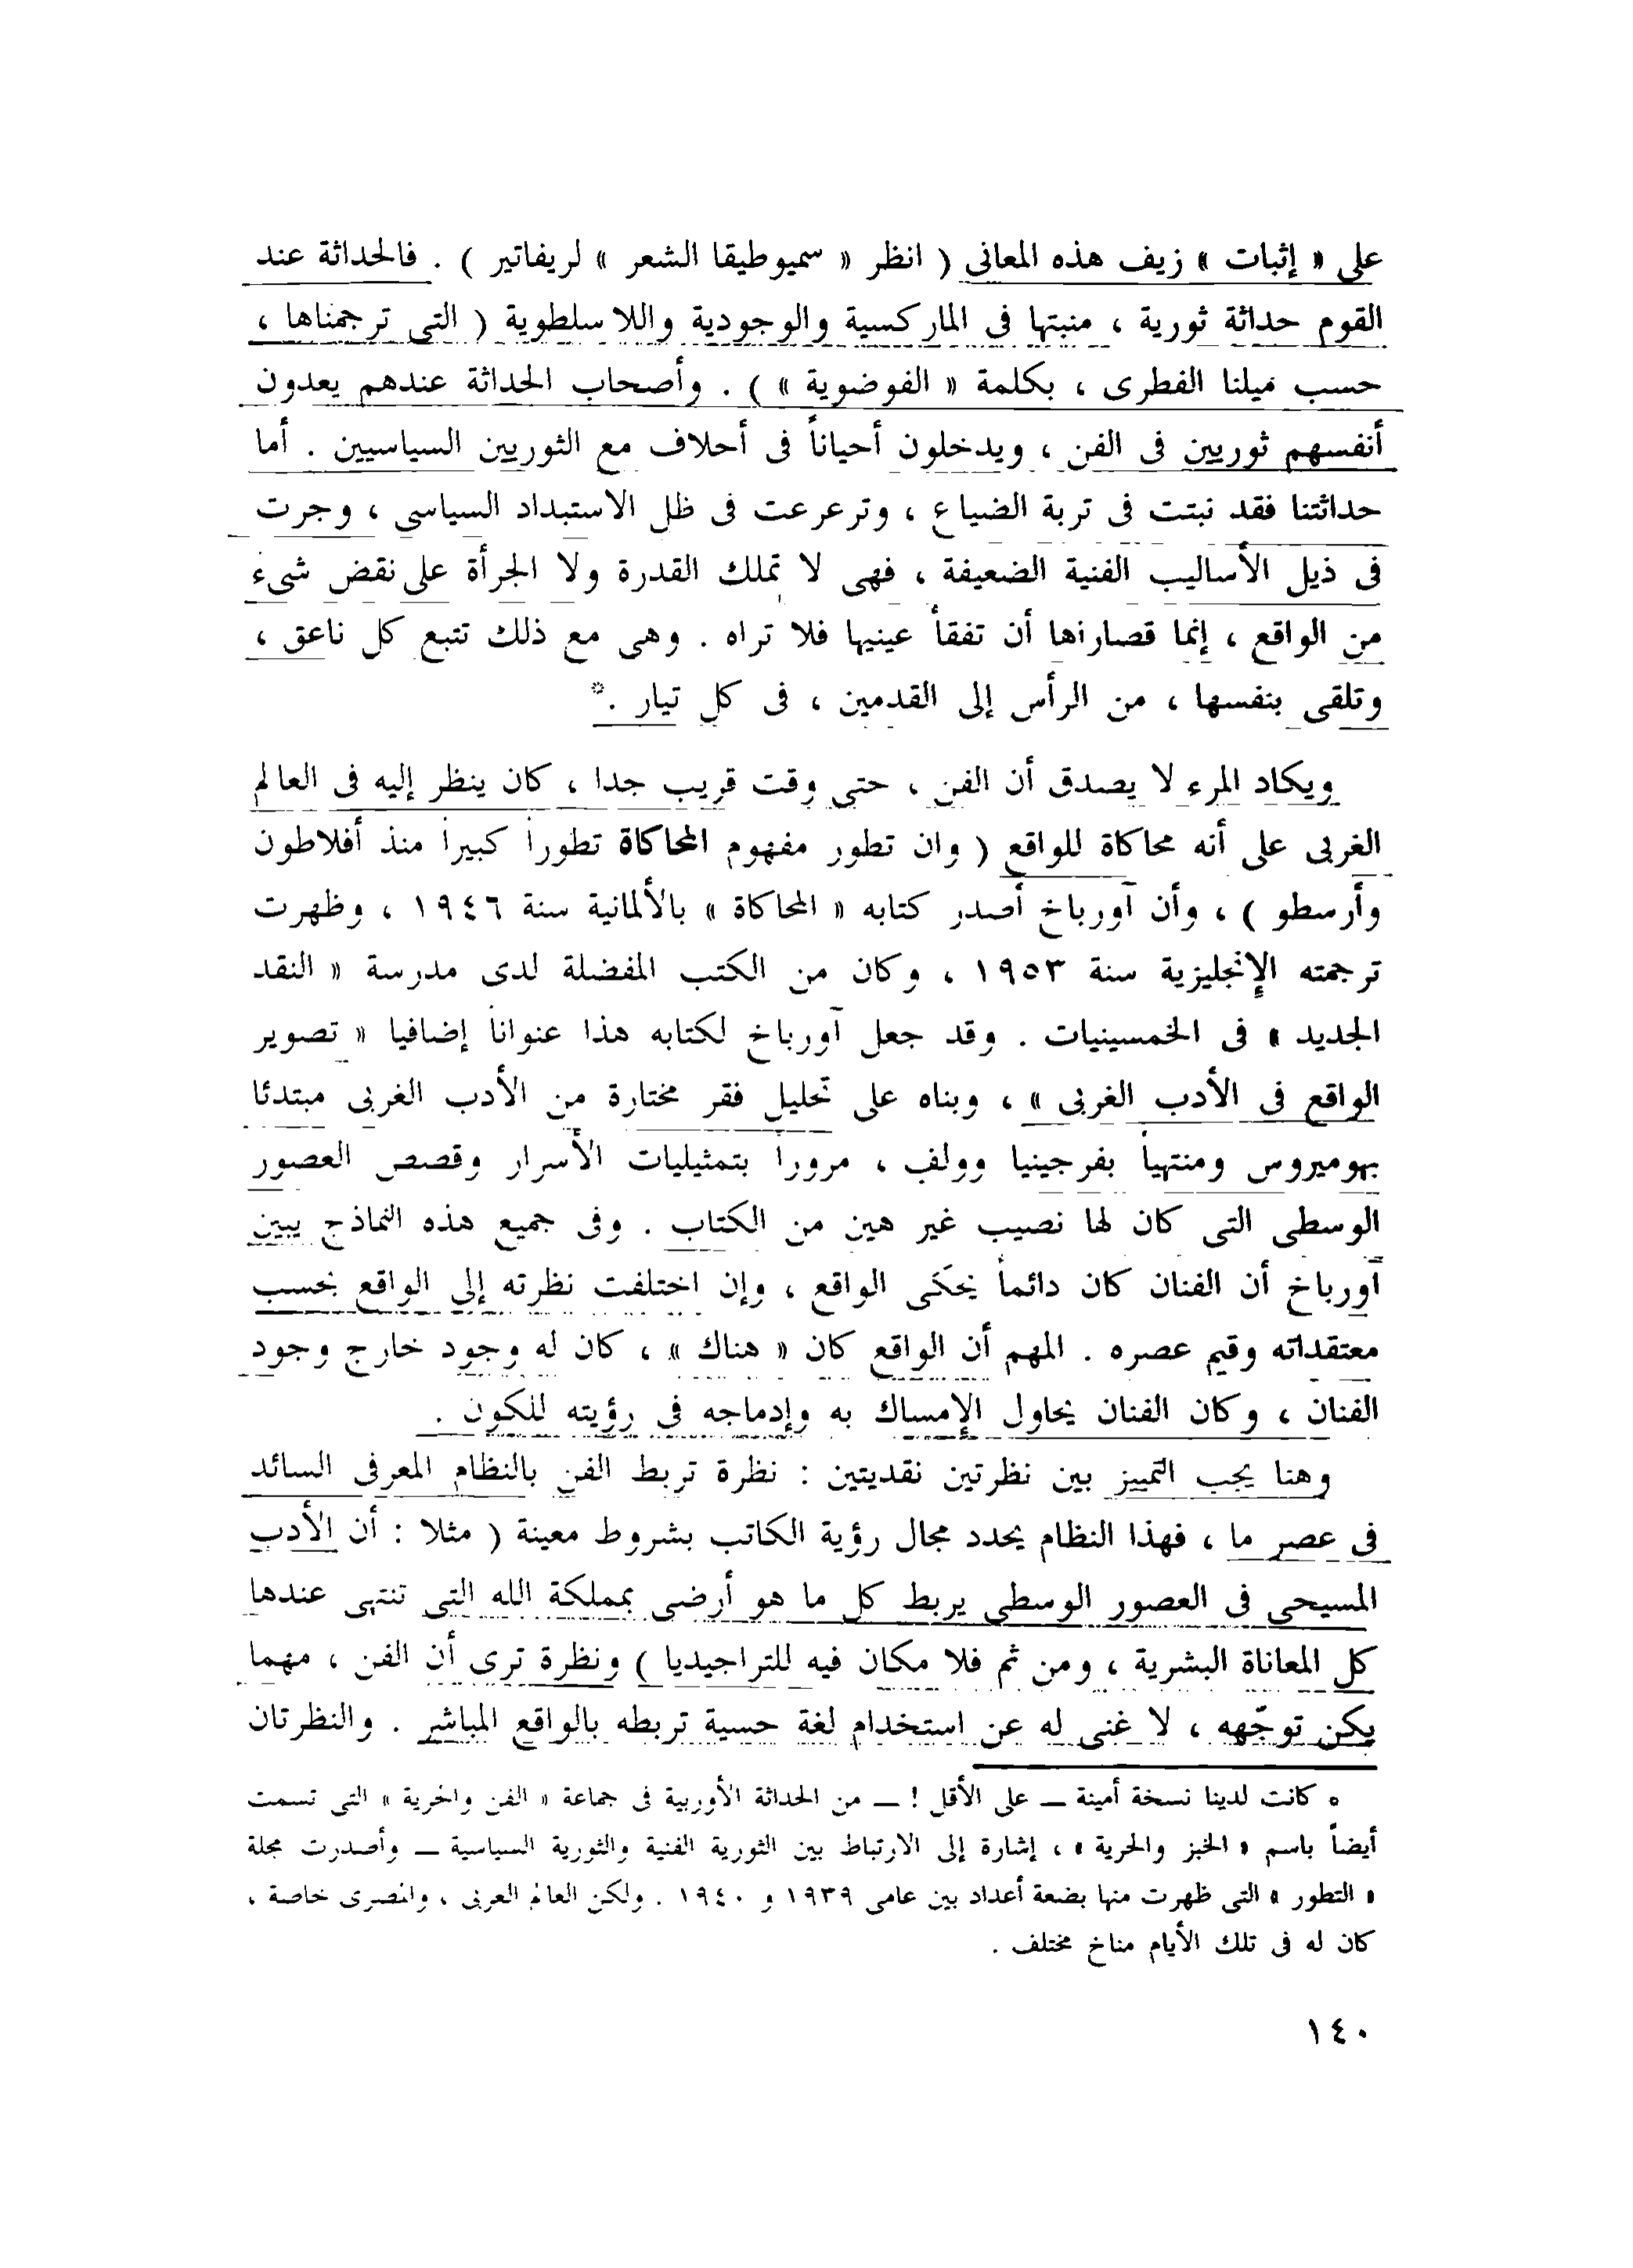 على « إثبات » زيف هذه المعانى ( انظر « سميوطيقا الشعر » لريفاتير ) . فالحداثة عند
القوم حداثة ثورية ، منبتها فى الماركسية والوجودية واللاسلطوية ( التى ترجمناها ،
حسب ميلنا الفطرى ، بكلمة « الفوضوية » ) . وأصحاب الحداثة عندهم يعدون
أنفسهم ثوريين فى الفن ، ويدخلون أحياناً فى أحلاف مع الثوريين السياسيين . أما
حداثتنا فقد نبتت فى تربة الضياع ، وترعرعت فى ظل الاستبداد السياسى ، وجرت
فى ذيل الأساليب الفنية الضعيفة ، فهى لا تملك القدرة ولا الجرأة على نقض شىء
من الواقع ، إنما قصاراها أن تفقأ عينيها فلا تراه . وهى مع ذلك تتبع كل ناعق ،
وتلقى بنفسها ، من الرأس إلى القدمين ، فى كل تيار .*
ويكاد المرء لا يصدق أن الفن ، حتى وقت قريب جدا ، كان ينظر إليه فى العالم
الغربى على أنه محاكاة للواقع ( وان تطور مفهوم المحاكاة تطوراً كبيراً منذ أفلاطون
وأرسطو ) ، وأن آورباخ أصدر كتابه « المحاكاة » بالألمانية سنة ١٩٤٦ ، وظهرت
ترجمته الإنجليزية سنة ١٩٥٣ ، وكان من الكتب المفضلة لدى مدرسة « النقد
الجديد » فى الخمسينيات . وقد جعل آورباخ لكتابه هذا عنواناً إضافيا « تصوير
الواقع فى الأدب الغربى » ، وبناه على تحليل فقر مختارة من الأدب الغربى مبتدئا
بهوميروس ومنتهياً بفرجينيا وولف ، مروراً بتمثيليات الأسرار وقصص العصور
الوسطى التى كان لها نصيب غير هين من الكتاب . وفى جميع هذه النماذج يبين
آورباخ أن الفنان كان دائماً يحكى الواقع ، وإن اختلفت نظرته إلى الواقع بحسب
معتقداته وقيم عصره . المهم أن الواقع كان « هناك » ، كان له وجود خارج وجود
الفنان ، وكان الفنان يحاول الإمساك به وإدماجه فى رؤيته للكون .
وهنا يجب التمييز بين نظرتين نقديتين : نظرة تربط الفن بالنظام المعرفى السائد
فى عصر ما ، فهذا النظام يحدد مجال رؤية الكاتب بشروط معينة ( مثلا : أن الأدب
المسيحى فى العصور الوسطى يربط كل ما هو أرضى بمملكة الله التى تنتهى عندها
كل المعاناة البشرية ، ومن ثم فلا مكان فيه للتراجيديا ) ونظرة ترى أن الفن ، مهما
يكن توجّهه ، لا غنى له عن استخدام لغة حسية تربطه بالواقع المباشر . والنظرتان
* كانت لدينا نسخة أمينة — على الأقل ! — من الحداثة الأوربية فى جماعة « الفن والحرية » التى تسمت
أيضاً باسم « الخبز والحرية » ، إشارة إلى الارتباط بين الثورية الفنية والثورية السياسية — وأصدرت مجلة
« التطور » التى ظهرت منها بضعة أعداد بين عامى ١٩٣٩ و ١٩٤٠ . ولكن العالم العربى ، والمصرى خاصة ،
كان له فى تلك الأيام مناخ مختلف .
١٤٠